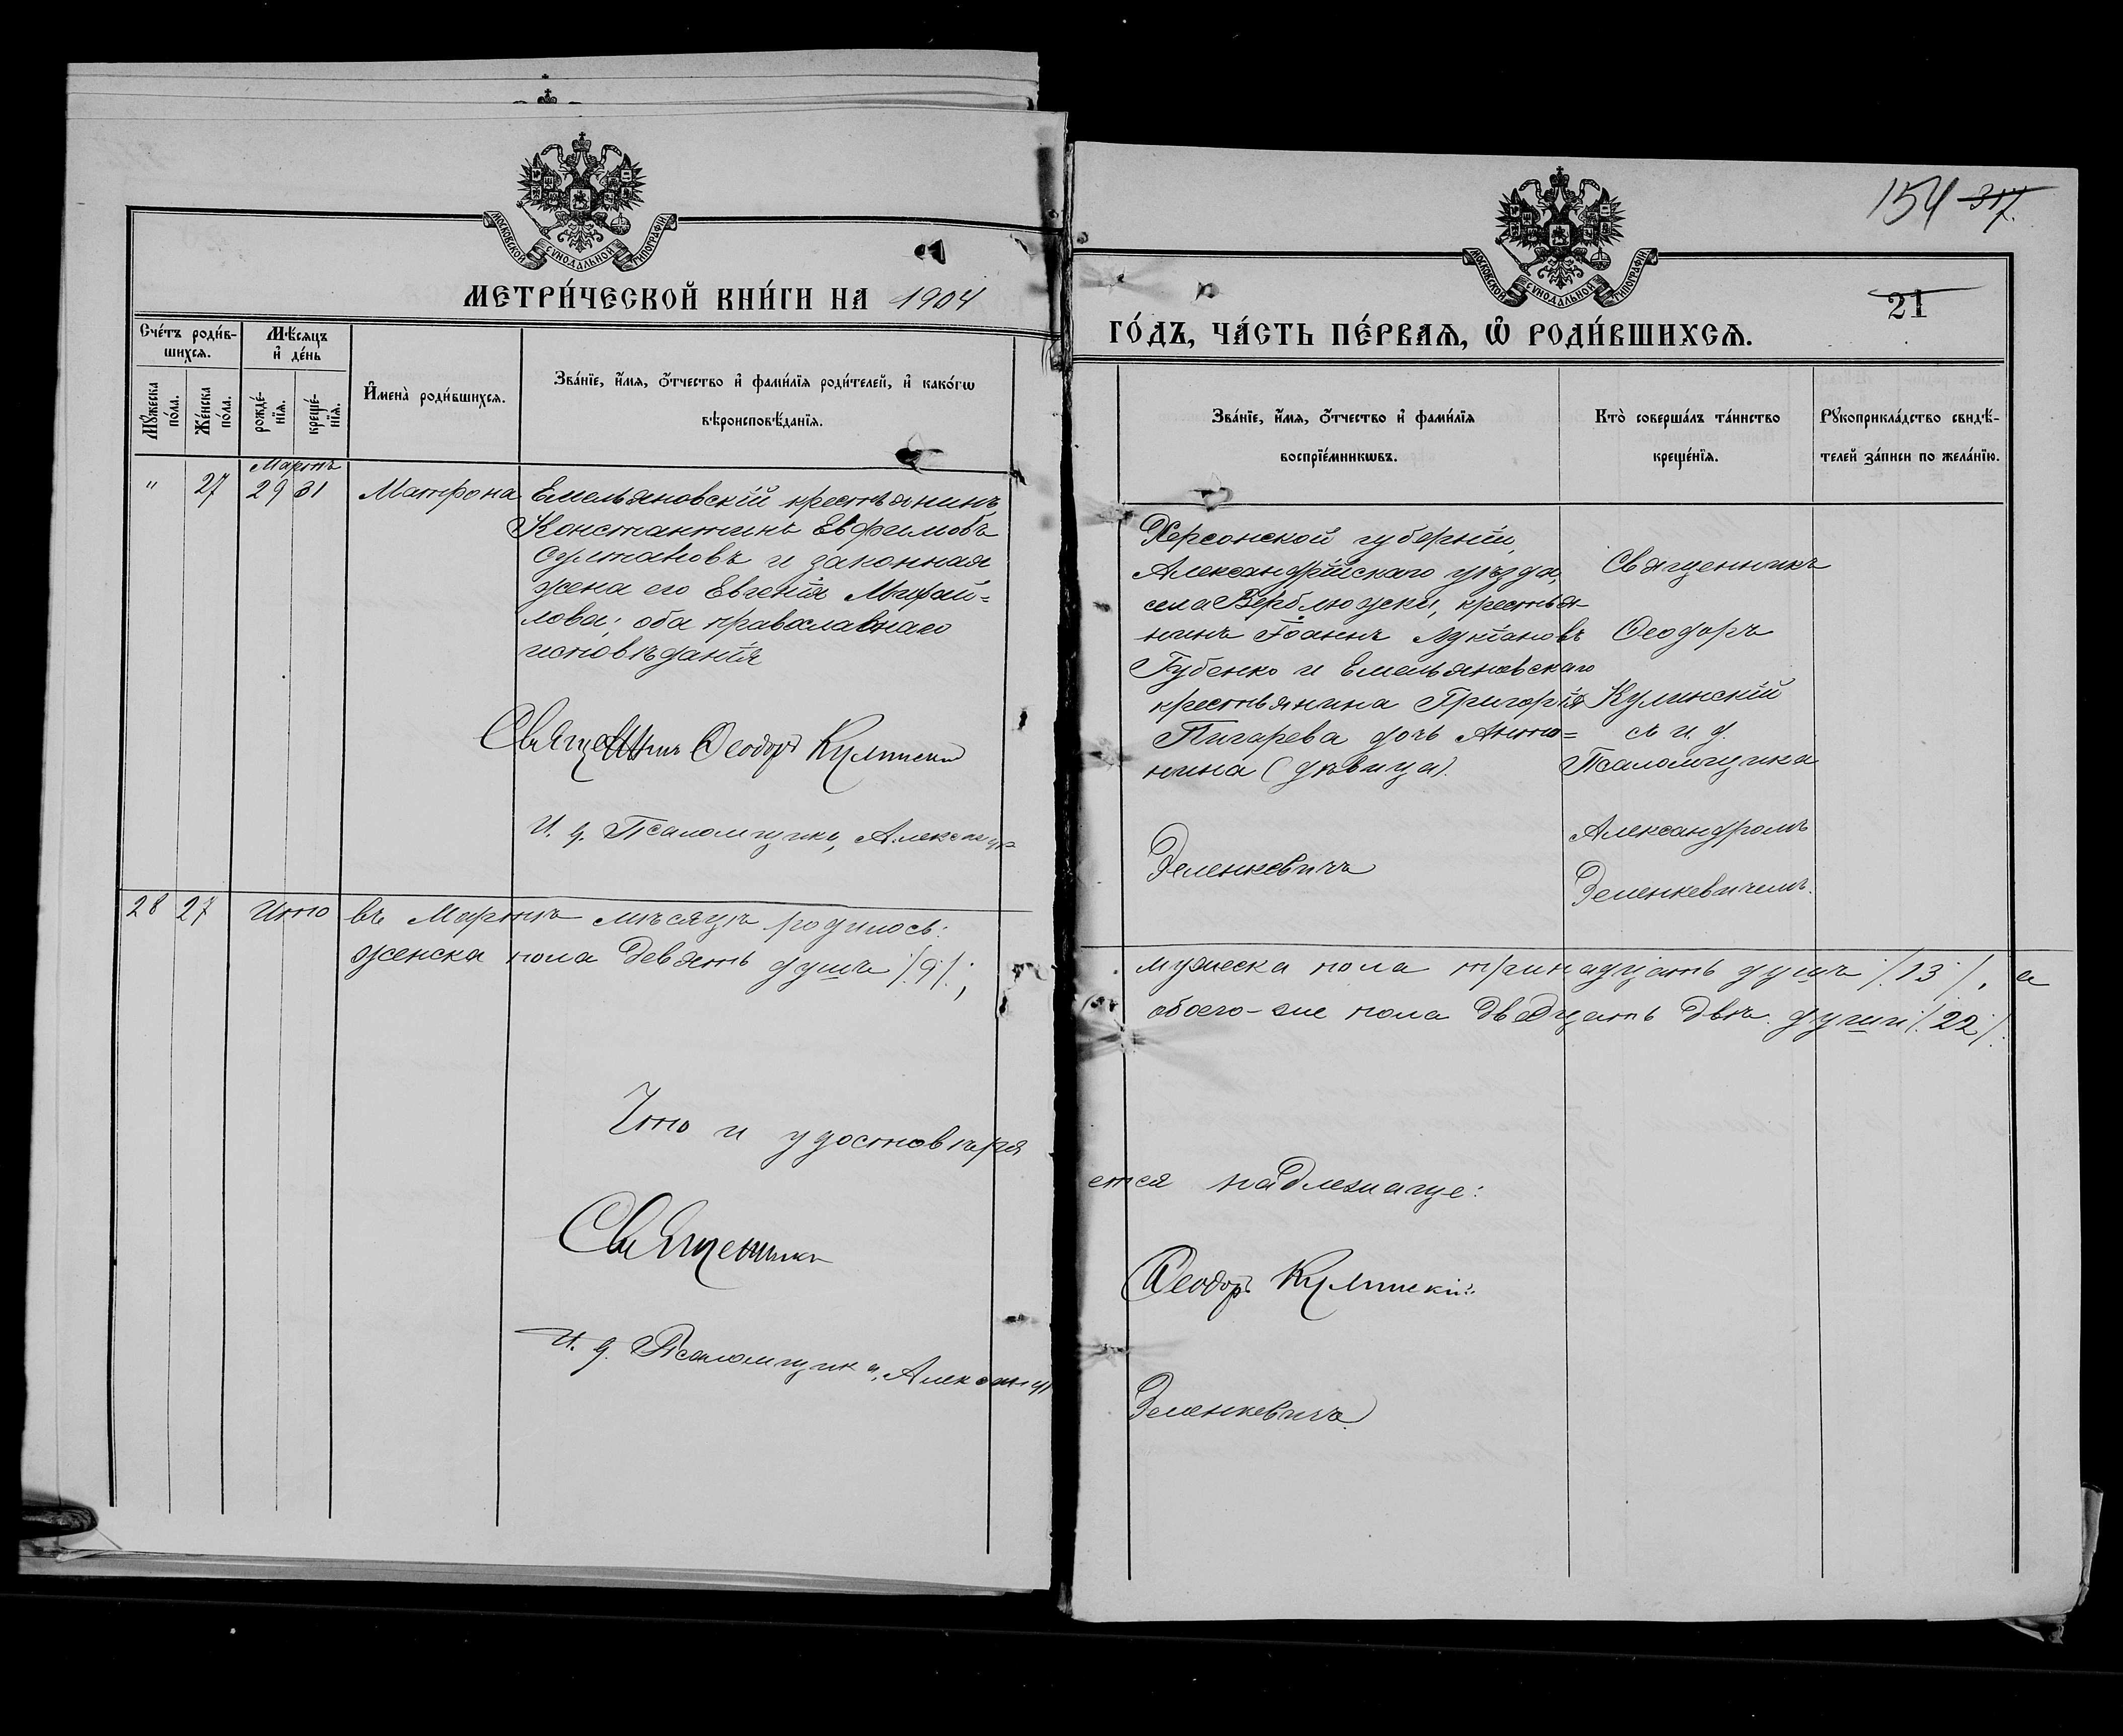 МОСКОВСКОЙ СѴНОДАЛЬНОЙ ТИПОГРАФІИ
МЕТРИ́ЧЕСКОЙ КНИ́ГИ НА 1904
Сче́тъ роди́в-
шихся.
Мѣ́сяцъ
и҆ де́нь
Мꙋ́жеска
по́ла.
Же́нска
по́ла.
рожде́-
нїѧ.
креще́-
нїѧ.
И҆мена̀ роди́вшихсѧ.
Зва́нїе, и҆́мѧ, ѻ҆́тчество и҆ фами́лїѧ роди́телей, и҆ како́гѡ
вѣроисповѣ́данїѧ.
Мартъ
" 27 29 31 Матрона
Емельяновскій крестьянинъ
Константинъ Евфимовъ
Султановъ и законная
жена его Евгенія Михай=
лова; оба православнаго
исповѣданія
Священникъ Ѳеодоръ Кулинскій
И. д. Псаломщика, Александръ
28 27 Итого въ Мартѣ мѣсяцѣ родилось:
женска пола девять душъ /.9/.;
Что и удостовѣря
Священникъ
И. д. Псаломщика, Александръ
154 317.
МОСКОВСКОЙ СѴНОДАЛЬНОЙ ТИПОГРАФІИ
21
ГО́ДЪ, ЧА́СТЬ ПЕ́РВАѦ, Ѡ҆ РОДИ́ВШИХСѦ.
Зва́нїе, и҆́мѧ, ѻ҆́тчество и҆ фами́лїѧ
воспрїе́мникѡвъ.
Кто̀ соверша́лъ та́инство
креще́нїѧ.
Рꙋкоприкла́дство свидѣ́-
телей за́писи по жела́нїю.
Херсонской губерніи,
Александрійскаго уѣзда,
села Верблюжки, крестья-
нинъ Іоаннъ Лукіановъ
Губенко и Емельяновскаго
крестьянина Григорія
Пигарева дочь Анто=
нина (дѣвица).
Зеленкевичъ
Священникъ
Ѳеодоръ
Кулинскій
съ и. д.
Псаломщика
Александромъ
Зеленкевичемъ.
мужеска пола тринадцать душъ /.13/., а
обоего-же пола двадцать двѣ души /.22/.
ется надлежаще:
Ѳеодоръ Кулинскій
Зеленкевичъ.